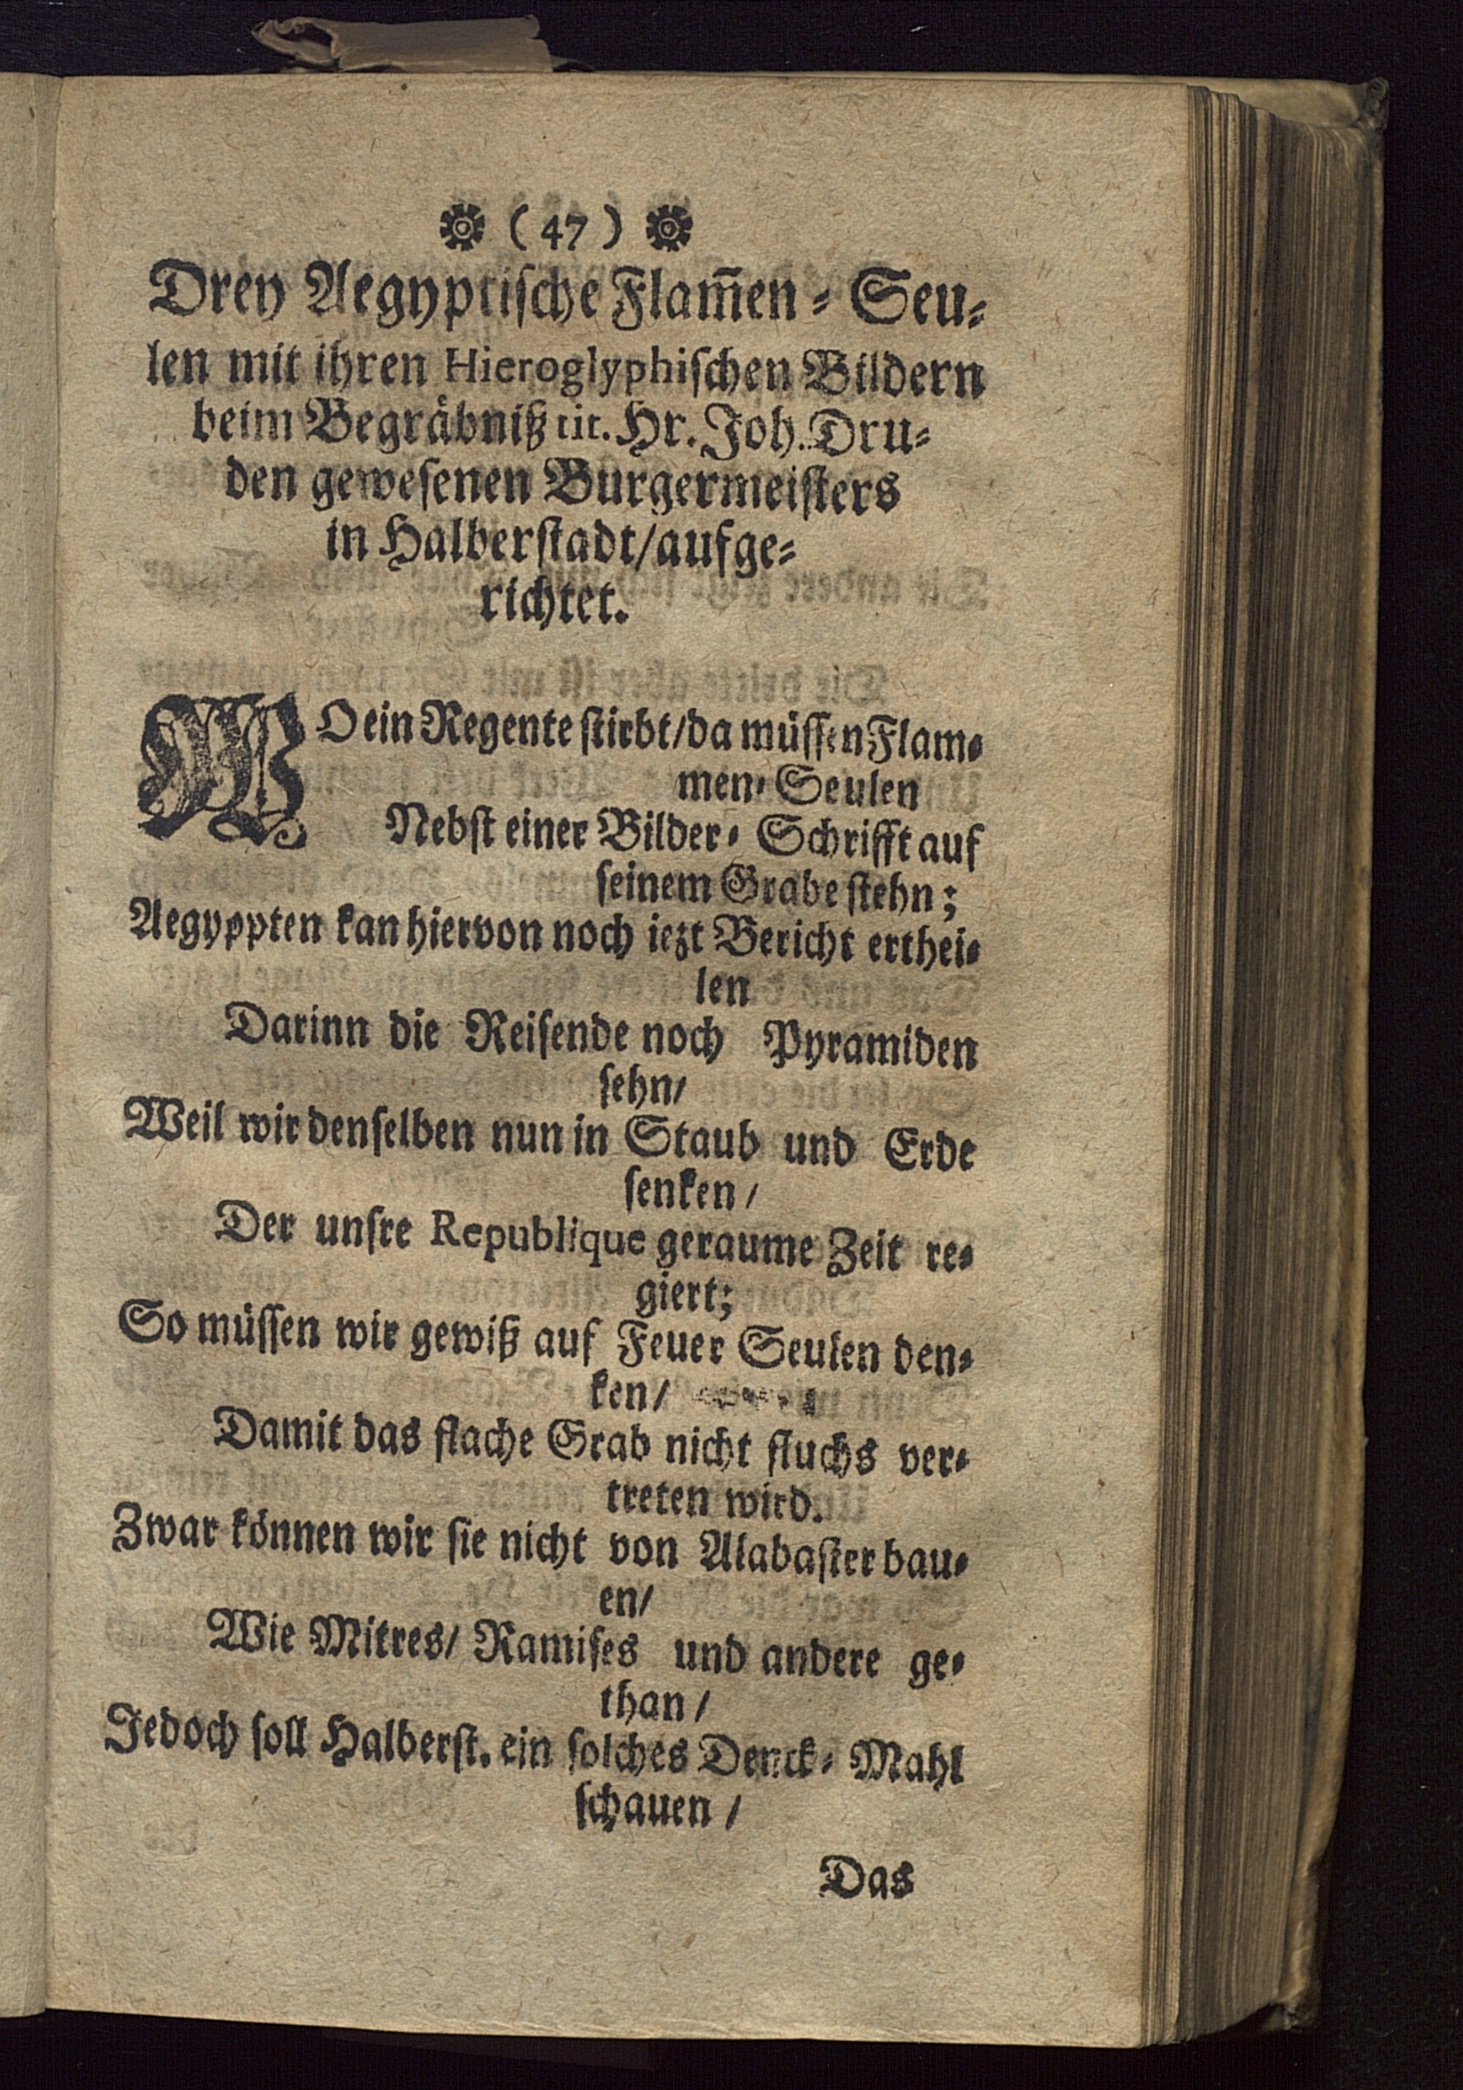 ( 47 )
Drey Aegyptische Flam̄en-Seu-
len mit ihren Hieroglyphischen Bildern
beim Begräbniß tit. Hr. Joh. Dru-
den gewesenen Burgermeisters
in Halberstadt/aufge-
richtet.
WO ein Regente stirbt/da müssen Flam-
men-Seulen
Nebst einer Bilder-Schrifft auf
seinem Grabe stehn;
Aegyppten kan hiervon noch iezt Bericht erthei-
len
Darinn die Reisende noch Pyramiden
sehn/
Weil wir denselben nun in Staub und Erde
senken/
Der unsre Republique geraume Zeit re-
giert;
So müssen wir gewiß auf Feuer Seulen den-
ken/
Damit das flache Grab nicht fluchs ver-
treten wird.
Zwar können wir sie nicht von Alabaster bau-
en/
Wie Mitres/ Ramises und andere ge-
than/
Jedoch soll Halberst. ein solches Denck-Mahl
schauen/
Das